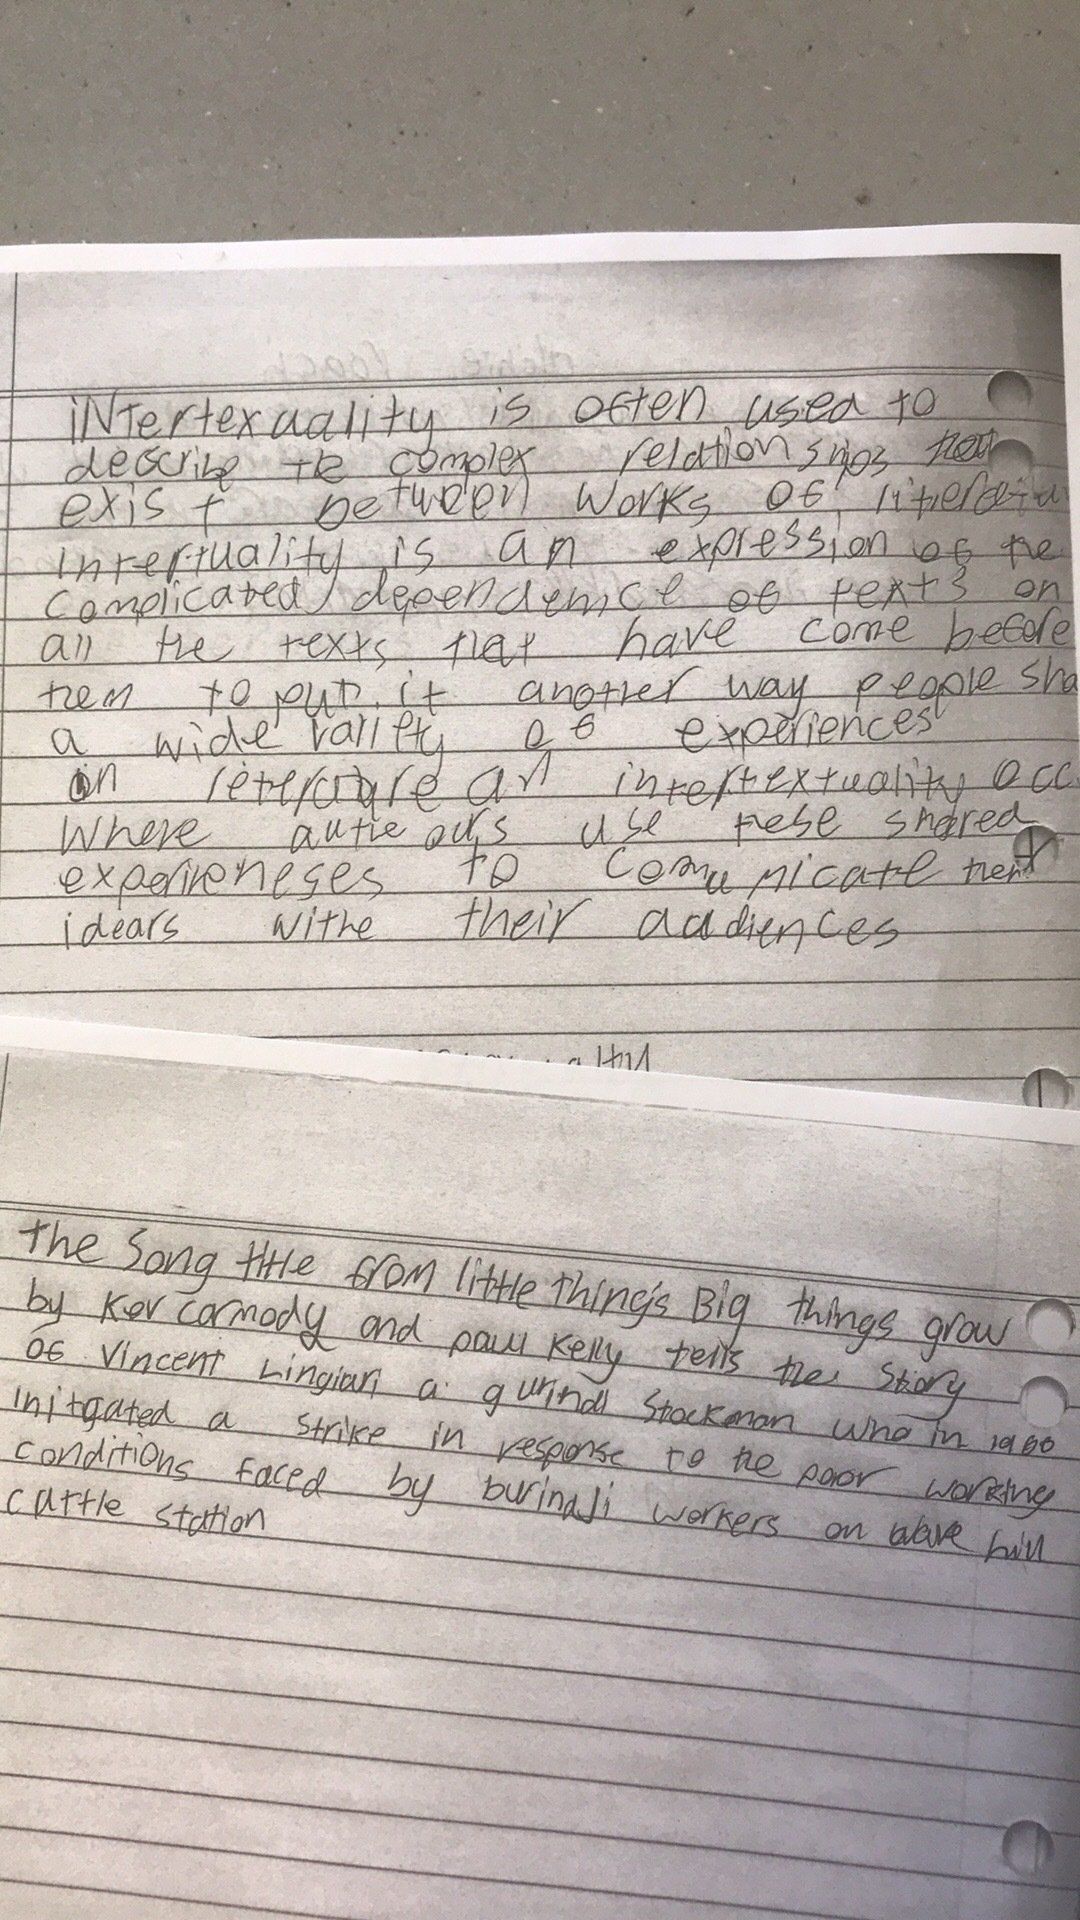 iNtertexuality is often used to
describe the complex relationships that
exist between works of literatu
intertuality is an expression of the
complicated dependence of texts on
all the texts that have come before
them to put it another way people sha
a wide variety of experiences
in leterature an intertextuality occ
Where use these shared
to communicate their
idears withe their audiences
the Song title from little thing's Big things grow
by Kev carmody and paul Kelly tells the story
OF Vincent Lingiari a gurindi Stockman who in
initgated a strike in response to the poor working
conditions faced by burindji workers on wave hill
cattle station